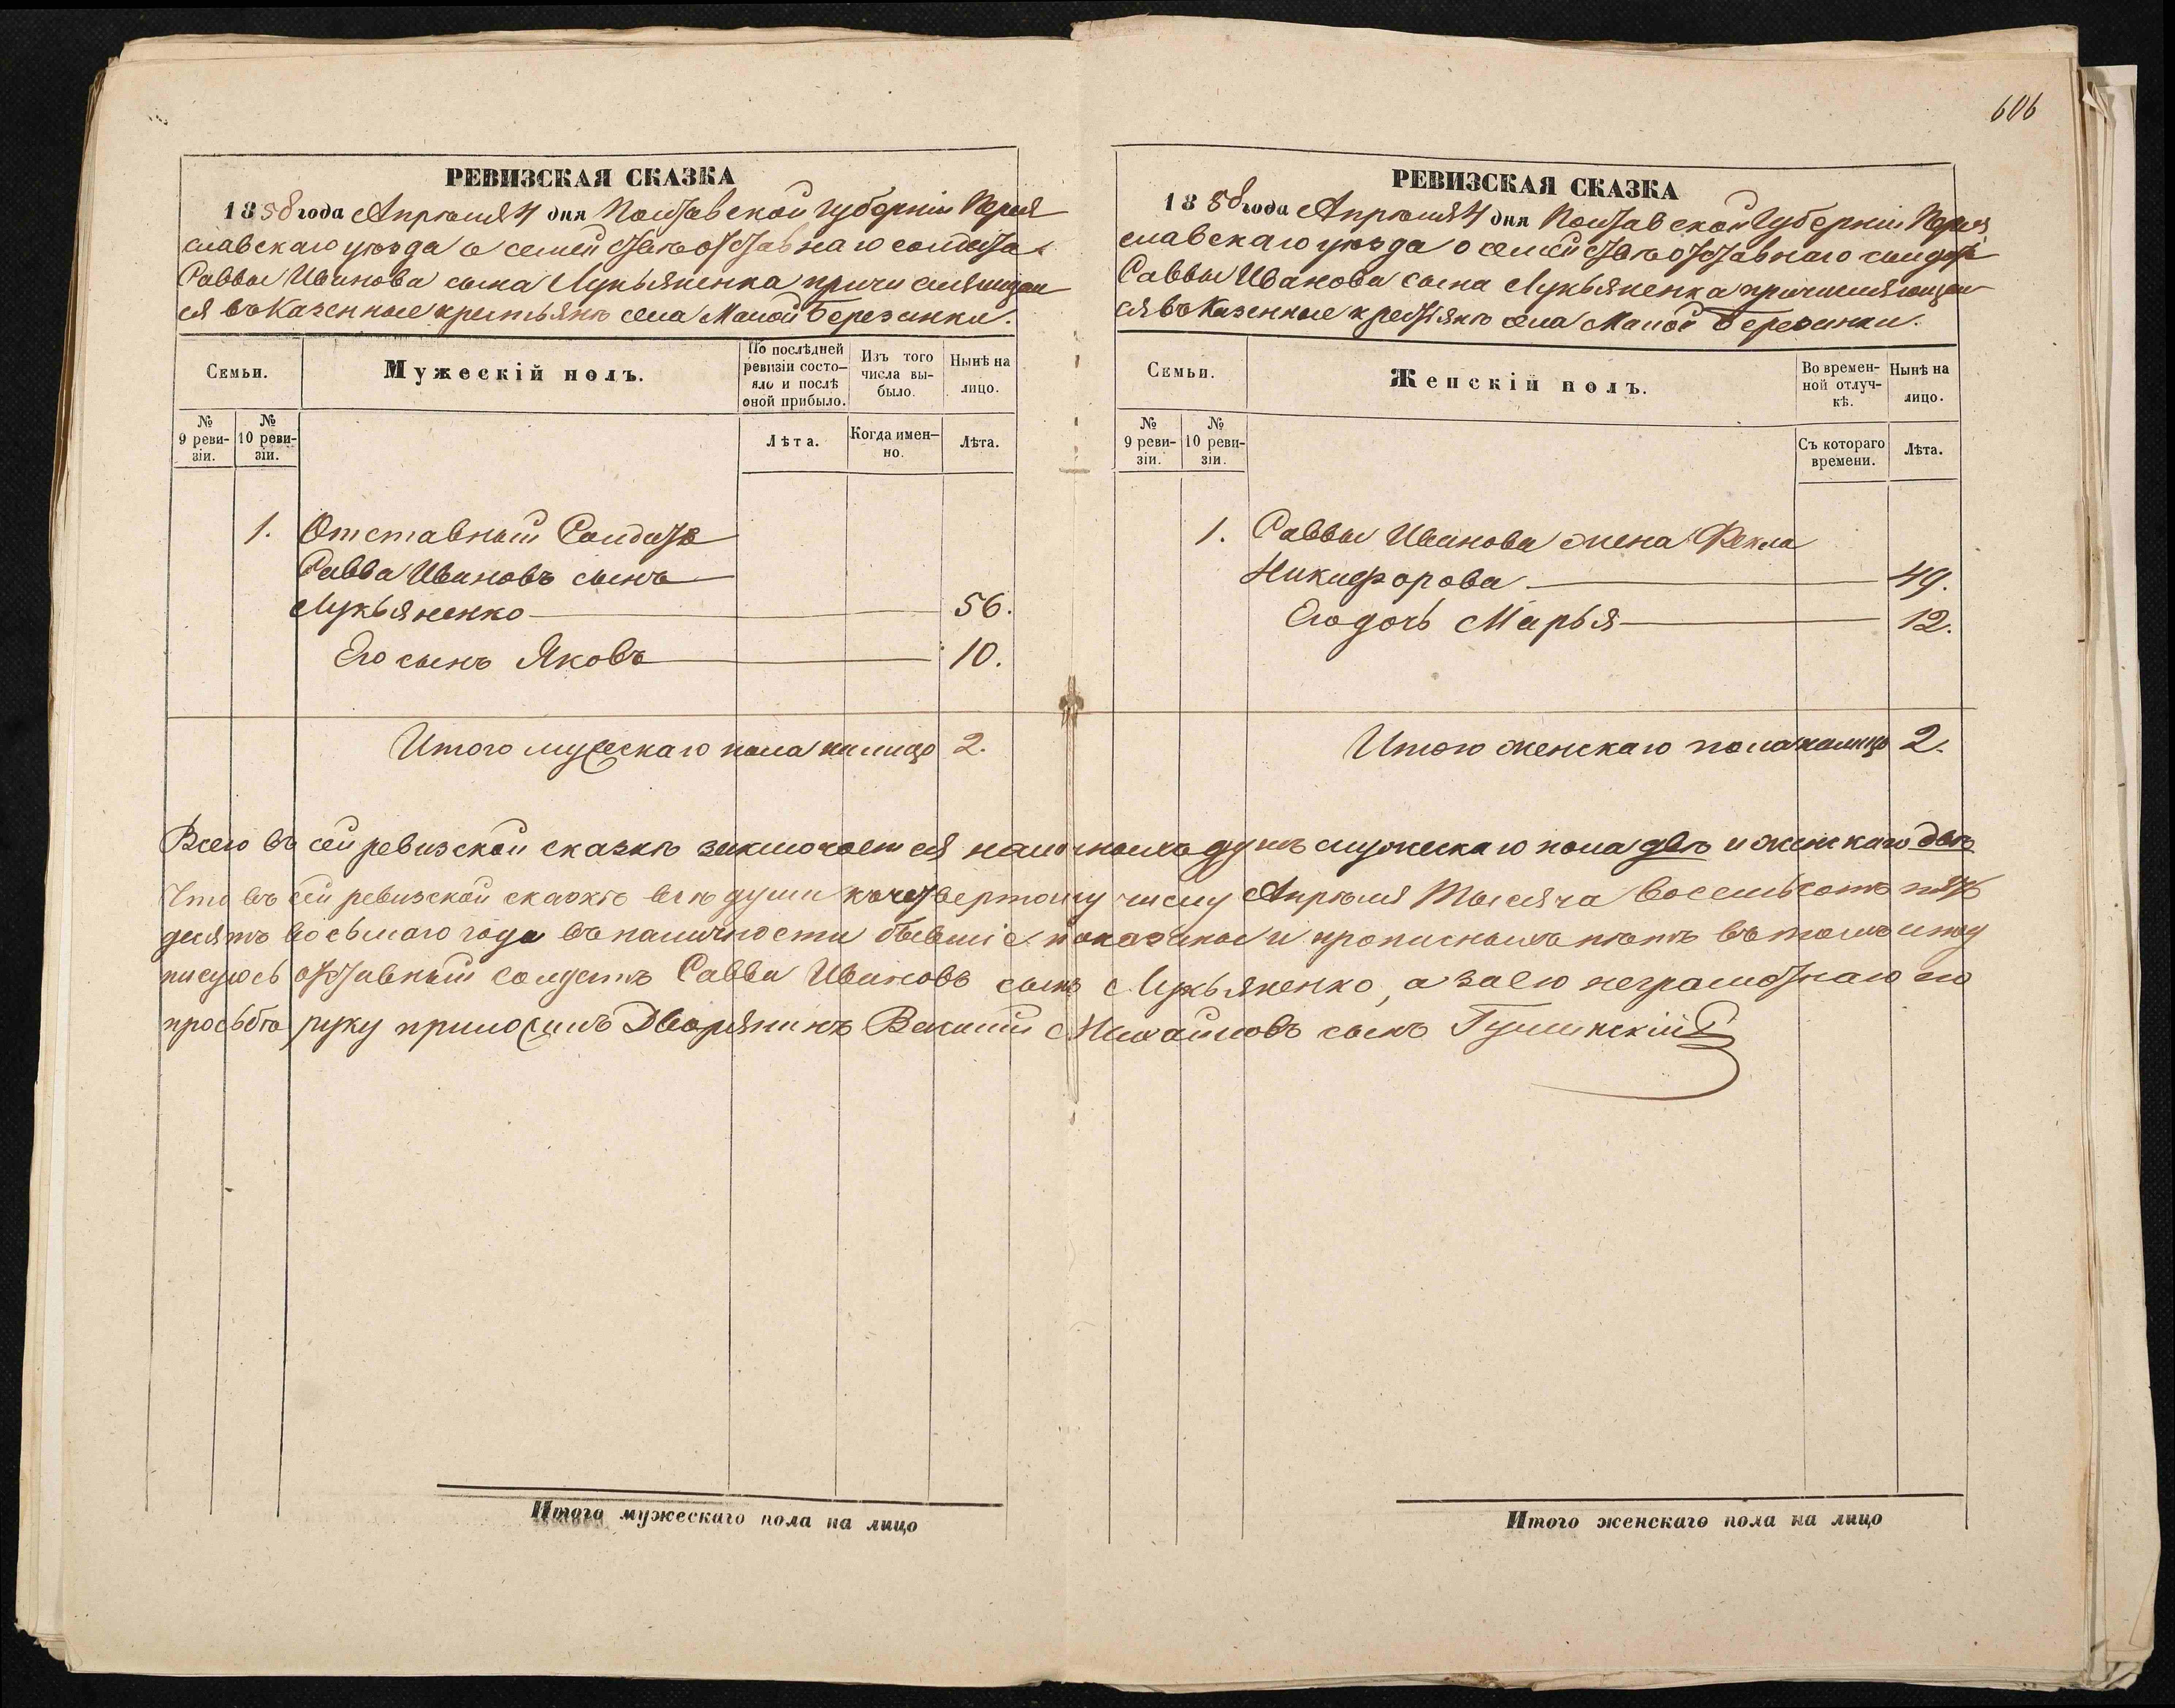 606
РЕВИЗСКАЯ СКАЗКА
1858 года Апрѣля 4 дня Полтавской Губерніи Перея
славскаго уѣзда о семействѣ отставнаго солдата
Саввы Иванова сына Лукьяненка причисляющаго
ся въ Казенные крестьянѣ села Малой Березанки.
Семьи.
Мужескій полъ.
По послѣдней ревизіи состо-
яло и послѣ
оной прибыло.
Изъ того
числа вы-
было.
Нынѣ на
лицо.
№
9 реви-
зіи.
№
10 реви-
зіи.
Лѣта.
Когда имен-
но.
Лѣта.
1. Отставный Солдатъ
Савва Ивановъ сынъ
Лукьяненко 56.
Его сынъ Яковъ 10.
Итого мужескаго пола на лицо 2.
РЕВИЗСКАЯ СКАЗКА
1858 года Апрѣля 4 дня Полтавской Губерніи Перея
славскаго уѣзда о семействѣ отставнаго солдата
Саввы Иванова сына Лукьяненка причисляющаго
ся въ Казенные крестьянѣ села Малой Березанки.
Семьи.
Женскій полъ.
Во времен-
ной отлуч-
кѣ.
Нынѣ на
лицо.
№
9 реви-
зіи.
№
10 реви-
зіи.
Съ котораго
времени.
Лѣта.
1. Саввы Иванова жена Фекла
Никифорова 49.
Его дочь Марья 12.
Итого женскаго пола на лицо 2.
Всего въ сей ревизской сказкѣ заключается наличныхъ душъ мужескаго пола двѣ и женскаго двѣ
Что въ сей ревизской сказкѣ всѣ души къ четвертому числу Апрѣля Тысяча восемьсотъ пять
десятъ восьмого года въ наличности бывшіе показаны и прописныхъ нѣтъ въ томъ и под
писуюсь отставный солдатъ Савва Ивановъ сынъ Лукьяненко, а за его неграмотнаго его
просьбѣ руку приложилъ Дворянинъ Василій Михайловъ сынъ
Итого мужескаго пола на лицо
Итого женскаго пола на лицо